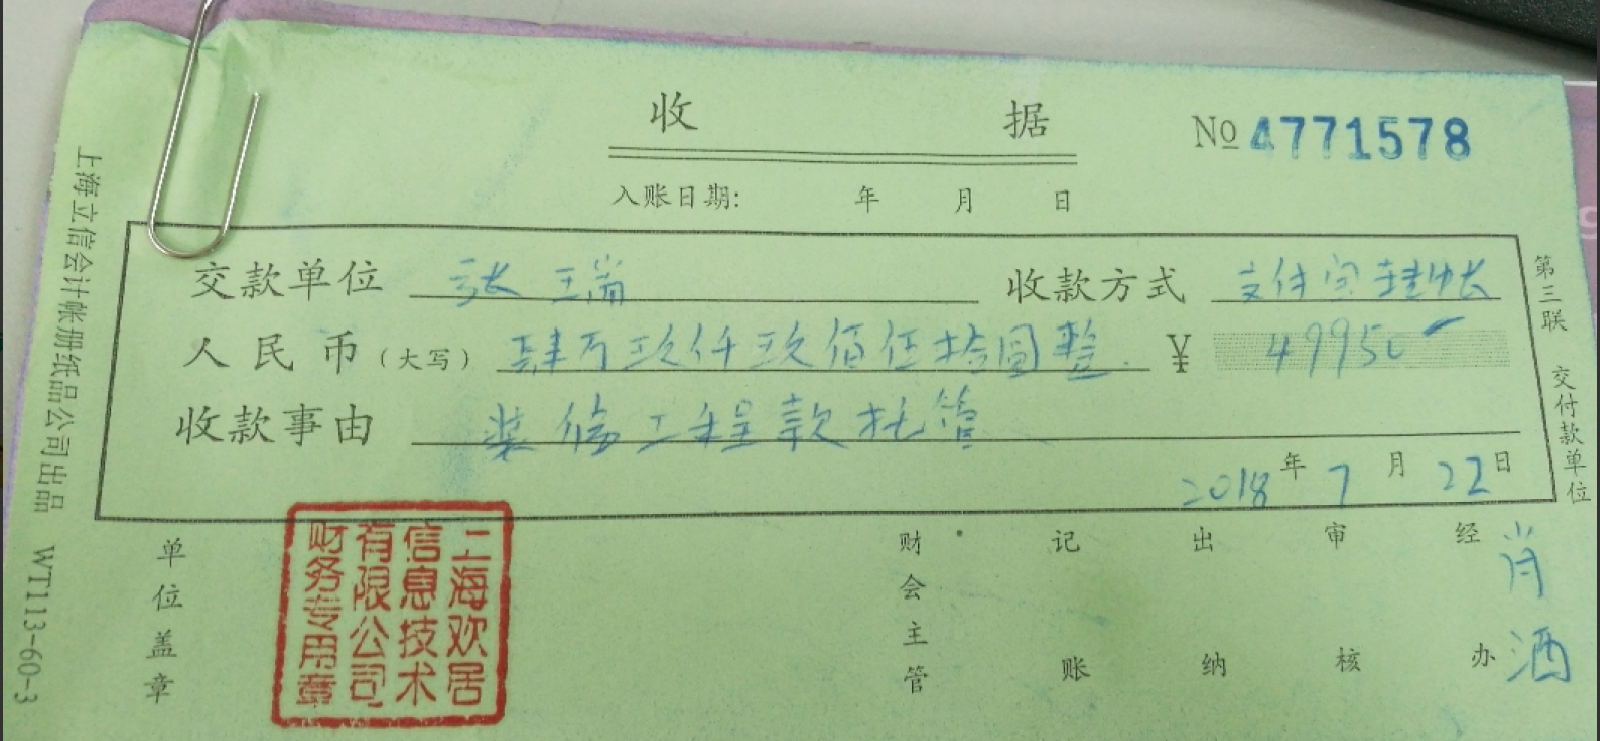 收 据
No 4771578
入账日期: 年 月 日
交款单位 张三瑞 收款方式 支付宝转帐
人民币(大写) 肆万玖仟玖佰伍拾圆整. ¥ 49950
收款事由 装修工程款托管
2018年7月22日
单位盖章
财会主管
记账
出纳
审核
经办
肖酒
上海欢居信息技术有限公司财务专用章
第三联 交付款单位
上海立信会计帐册纸品公司出品 WT113-60-3